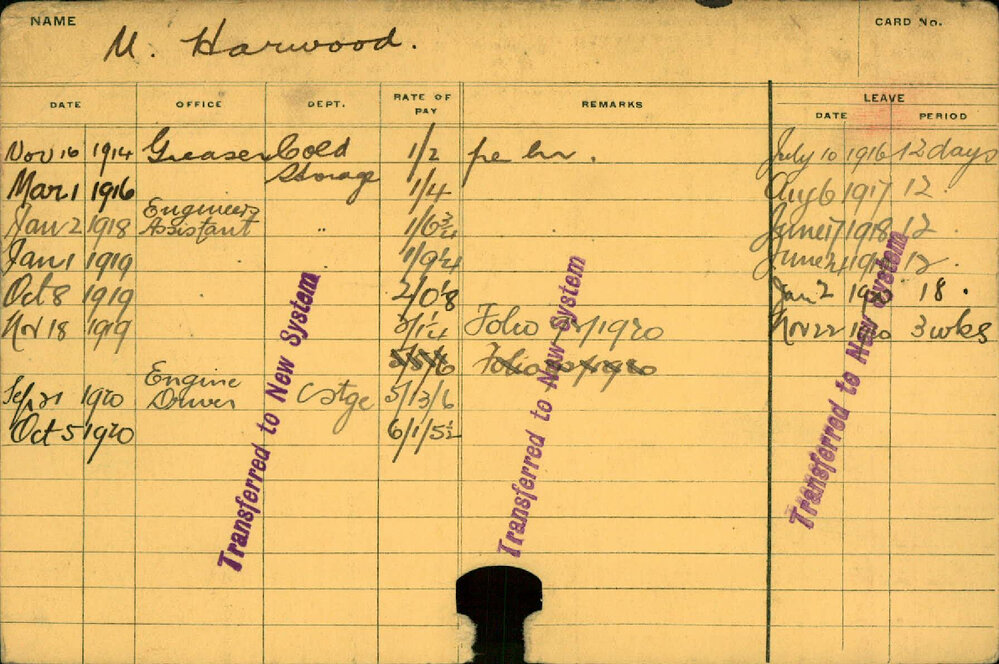 NAME CARD No.
M. Harwood.
DATE OFFICE DEPT. RATE OF PAY REMARKS LEAVE
DATE PERIOD
Nov 16 1914 Greaser Cold Storage 1/2 per hr. July 10 1916 12 days
Mar 1 1916 1/4 Aug 6 1917 12
Jan 2 1918 Engineers Assistant " 1/6¾ June 17 1918 12
Jan 1 1919 June 24 12.
Oct 8 1919 Jan 2 1920 18.
Nov 18 1919 Folio 1920 Nov 22 1920 3 wks
Folio
Sep 21 1920 Engine Driver C Stge 5/13/6
Oct 5 1920 6/1/5½
Transferred to New System
Transferred to New System
Transferred to New System